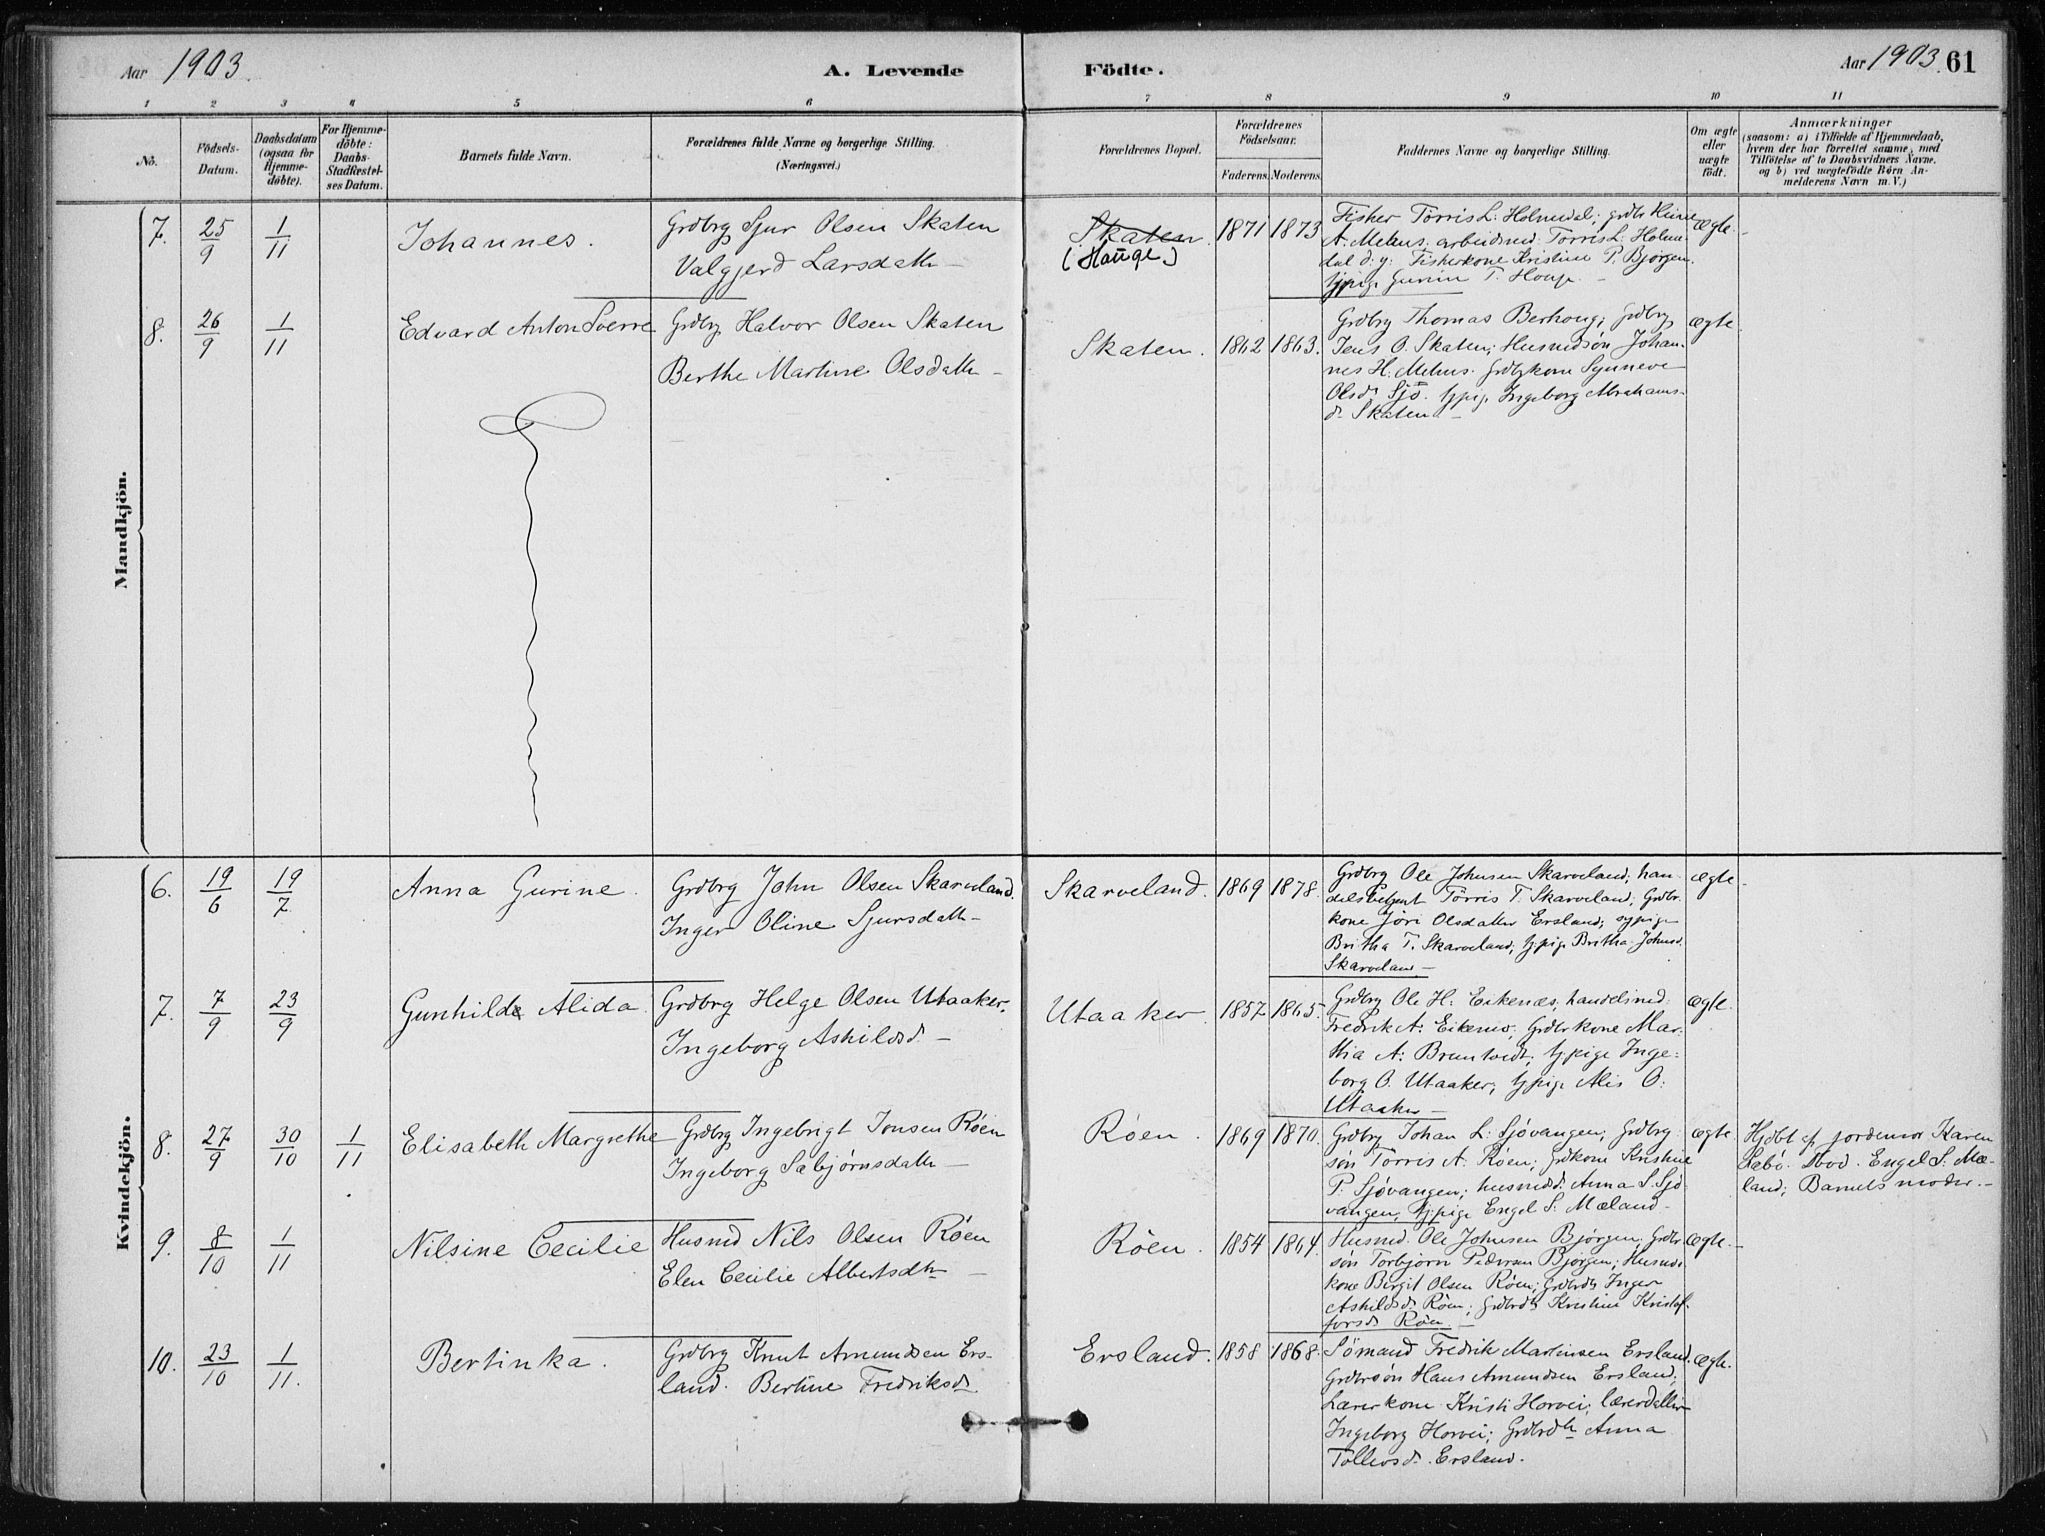 Aar 1903.
A. Levende
Födte.
Aar 1903. 61
1 2 3 4 5 6 7 8 9 10 11
No.
Födsels-
Datum.
Daabsdatum
(ogsaa for
Hjemme-
döbte).
For Hjemme-
döbte:
Daabs-
Stadfæstel-
ses Datum.
Barnets fulde Navn.
Forældrenes fulde Navne og borgerlige Stilling.
(Næringsvei.)
Forældrenes Bopæl.
Forældrenes
Födselsaar.
Faderens. Moderens.
Faddernes Navne og borgerlige Stilling.
Om ægte
eller
uægte
födt.
Anmærkninger
(saasom: a) i Tilfælde af Hjemmedaab,
hvem der har forrettet samme, med
Tilföielse af to Daabsvidners Navne.
og b) ved uægtefödte Börn An-
melderens Navn m. V.)
Mandkjön.
7. 25/9 1/11 Johannes.
Grdbrg Sjur Olsen Skaten
Valgjerd Larsdattr
Skaten.
(Hauge)
1871 1873
Fisker Tørris L: Holmedal; grdbr
A. Mehus. arbeidsmd: Tørris L: Holme-
dal d. y: Fiskerkone Kristine P. Bjørgen.
tjpig
ægte.
8. 26/9 1/11 Edvard Anton Sverre
Grdbrg Halvor Olsen Skaten
Berthe Martine Olsdattr
Skaten. 1862 1863.
Grdbrg Thomas Berhoug; grdbrg
Jens O. Skaten; Husmdsøn Johan-
nes H. Mehus. grdbrkone Synneve
Olsdr Sjø. tjpig. Ingeborg Abrahams-
dr Skaten
ægte
Kvindekjön.
6. 19/6 19/7 Anna Gurine.
Grdbrg John Olsen Skarveland.
Inger Oline Sjursdattr
Skarveland. 1869 1878.
Grdbrg Ole Johnsen Skarveland, han-
delsbetjent Tørris T. Skarveland; Grdbr.
kone Jøri Olsdatter Ersland; sypige
Britha T. Skarveland; tjpige Britha Johnsd.
Skarveland
ægte
7. 7/9 23/9 Gunhild Alida
Grdbrg Helge Olsen Utaaker.
Ingeborg Askildsd.
Utaaker. 1857 1865.
Grdbrg Ole H: Eikenæs, handelsmd:
Fredrik A: Eikenæs, Grdbrkone Mar-
thia A: Bruntvedt; tjpige Inge-
borg O. Utaaker; tjpige Alis O:
Utaaker
ægte.
8. 27/9 30/10 1/11 Elisabeth Margrethe
Grdbrg Ingebrigt Jonsen Røen
Ingeborg Sæbjørnsdattr
Røen. 1869 1870.
Grdbrg Johan L: Sjøvangen; Grdbrg.
søn Tørris A: Røen; grdkone Kristine
P: Sjøvangen; husmdd: Anna S. Sjø-
vangen, tjpige Engel S: Mæland
ægte.
Hjdbt af jordemor Karen
Sæbø. Engel S. Mæ-
land; Barnets moder.
9. 8/10 1/11 Nilsine Cecilie
Husmd Nils Olsen Røen
Elen Cecilie Albertsdtr
Røen. 1854 1864.
Husmd. Ole Johnsen Bjørgen. Grdbr
søn Torbjørn Pedersen Bjørgen; Husmds
kone Bergit Olsen Røen; Grdbrdtr Inger
Askildsdr Røen; Grdbrdtr Kristine Kristof-
forsdr Røen.
ægte.
10. 23/10 1/11. Bertinka.
Grdbrg Knut Amundsen Ers-
land. Bertine Fredriksdr
Ersland. 1858 1868.
Sømand Fredrik Martinsen Ersland.
Grdbrsøn Hans Amundsen Ersland;
Lærerkone Kristi Horvei; lærerdatter
Ingeborg Horvei; Grdbrdtr Anna
Tollevsdr. Ersland.
ægte.